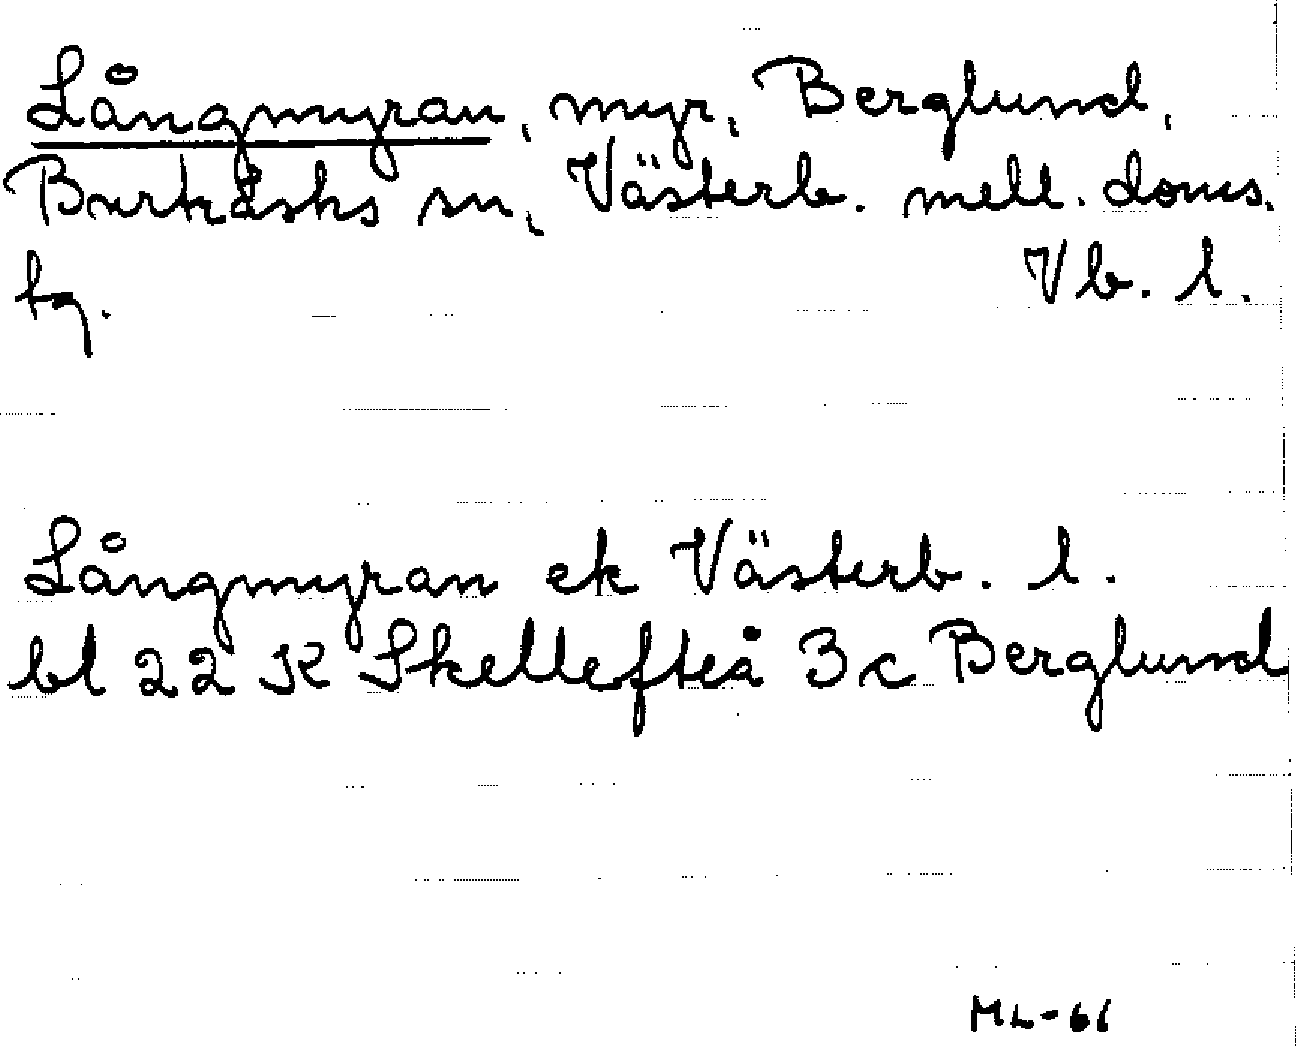 Långmyran, myr, Berglund,
Burträsks sn, Västerb. mell. doms.
tg. Vb. l.
Långmyran ek Västerb. l.
bl 22 K Skellefteå 3c Berglund
ML-61